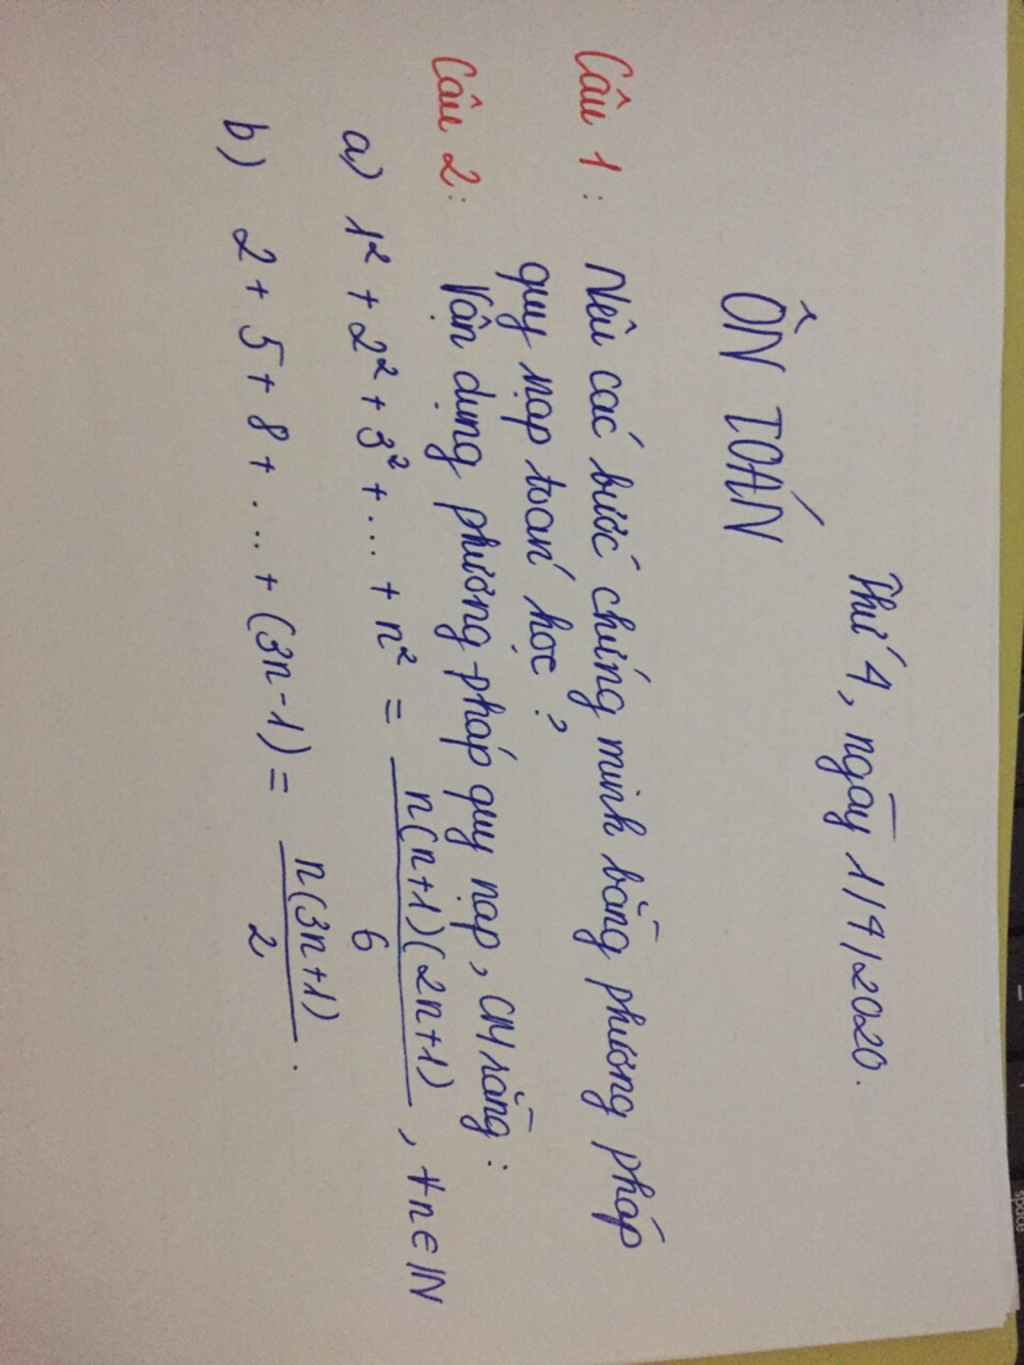 Thứ 4, ngày 1/4/2020.
ÔN TOÁN
Câu 1: Nêu các bước chứng minh bằng phương pháp
quy nạp toán học?
Câu 2: Vận dụng phương pháp quy nạp, CM rằng:
a) 1² + 2² + 3² + ... + n² = n(n+1)(2n+1)/6, ∀n∈ℕ
b) 2 + 5 + 8 + ... + (3n-1) = n(3n+1)/2.
space